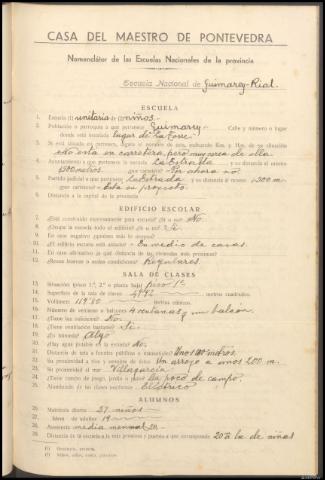 CASA DEL MAESTRO DE PONTEVEDRA
Nomenclátor de las Escuelas Nacionales de la provincia
Escuela Nacional de Guimarey-Rial.
ESCUELA
1. Escuela (1) unitaria de (2) niños.
2. Población o parroquia a que pertenece Guimarey - Calle y número o lugar
donde está instalada lugar de La Torre.
3. Si está situada en carretera,
esto está en carretera, pero muy cerca de ella
4. Ayuntamiento a que pertenece la escuela La Estrada y su distancia al mismo
Por ahora no.
5. Partido judicial a que pertenece La Estrada y su distancia al mismo
Está en proyecto
6. Distancia a la capital de la provincia
EDIFICIO ESCOLAR
7. ¿Está construido expresamente para escuela? (Si o no) No.
8. ¿Ocupa la escuela todo el edificio? (Si o no) Si
9. En caso negativo ¿quiénes más lo ocupan?
10. El edificio escuela está aislado? En medio de casas.
11. En caso afirmativo ¿a qué distancia de las viviendas más próximas?
12. ¿Reune buenas o malas condiciones? Regulares.
SALA DE CLASES
13. Situación (piso 1.º, 2.º o planta baja) piso 1º
14. Superficie de la sala de clases metros cuadrados.
15. Volúmen: metros cúbicos.
16. Número de ventanas o balcones 4 ventanas y un balcon.
17. ¿Tiene luz suficiente? No.
18. ¿Tiene ventilación bastante? Si.
19. ¿Es húmeda? Algo
20. ¿Hay agua potable en la escuela? No.
21. Distancia de ésta a fuentes públicas o manantiales Unos 100 metros.
22. Su proximidad a ríos y nombre de éstos Un arroyo a unos 200 m.
23. Su proximidad al mar Villagarcía
24. ¿Tiene campo de juego, jardín o patio? Un poco de campo.
25. Alumbrado de las clases nocturnas Eléctrico
ALUMNOS
26. Matrícula diurna 57 niños
27. Idem de adultos 19
28. Asistencia media mensual
29. Distancia de la escuela a la más próxima y pueblo a que corresponde 20 á la de niñas
(1) Graduada, unitaria,
(2) Niños, niñas, mixta, párvulos